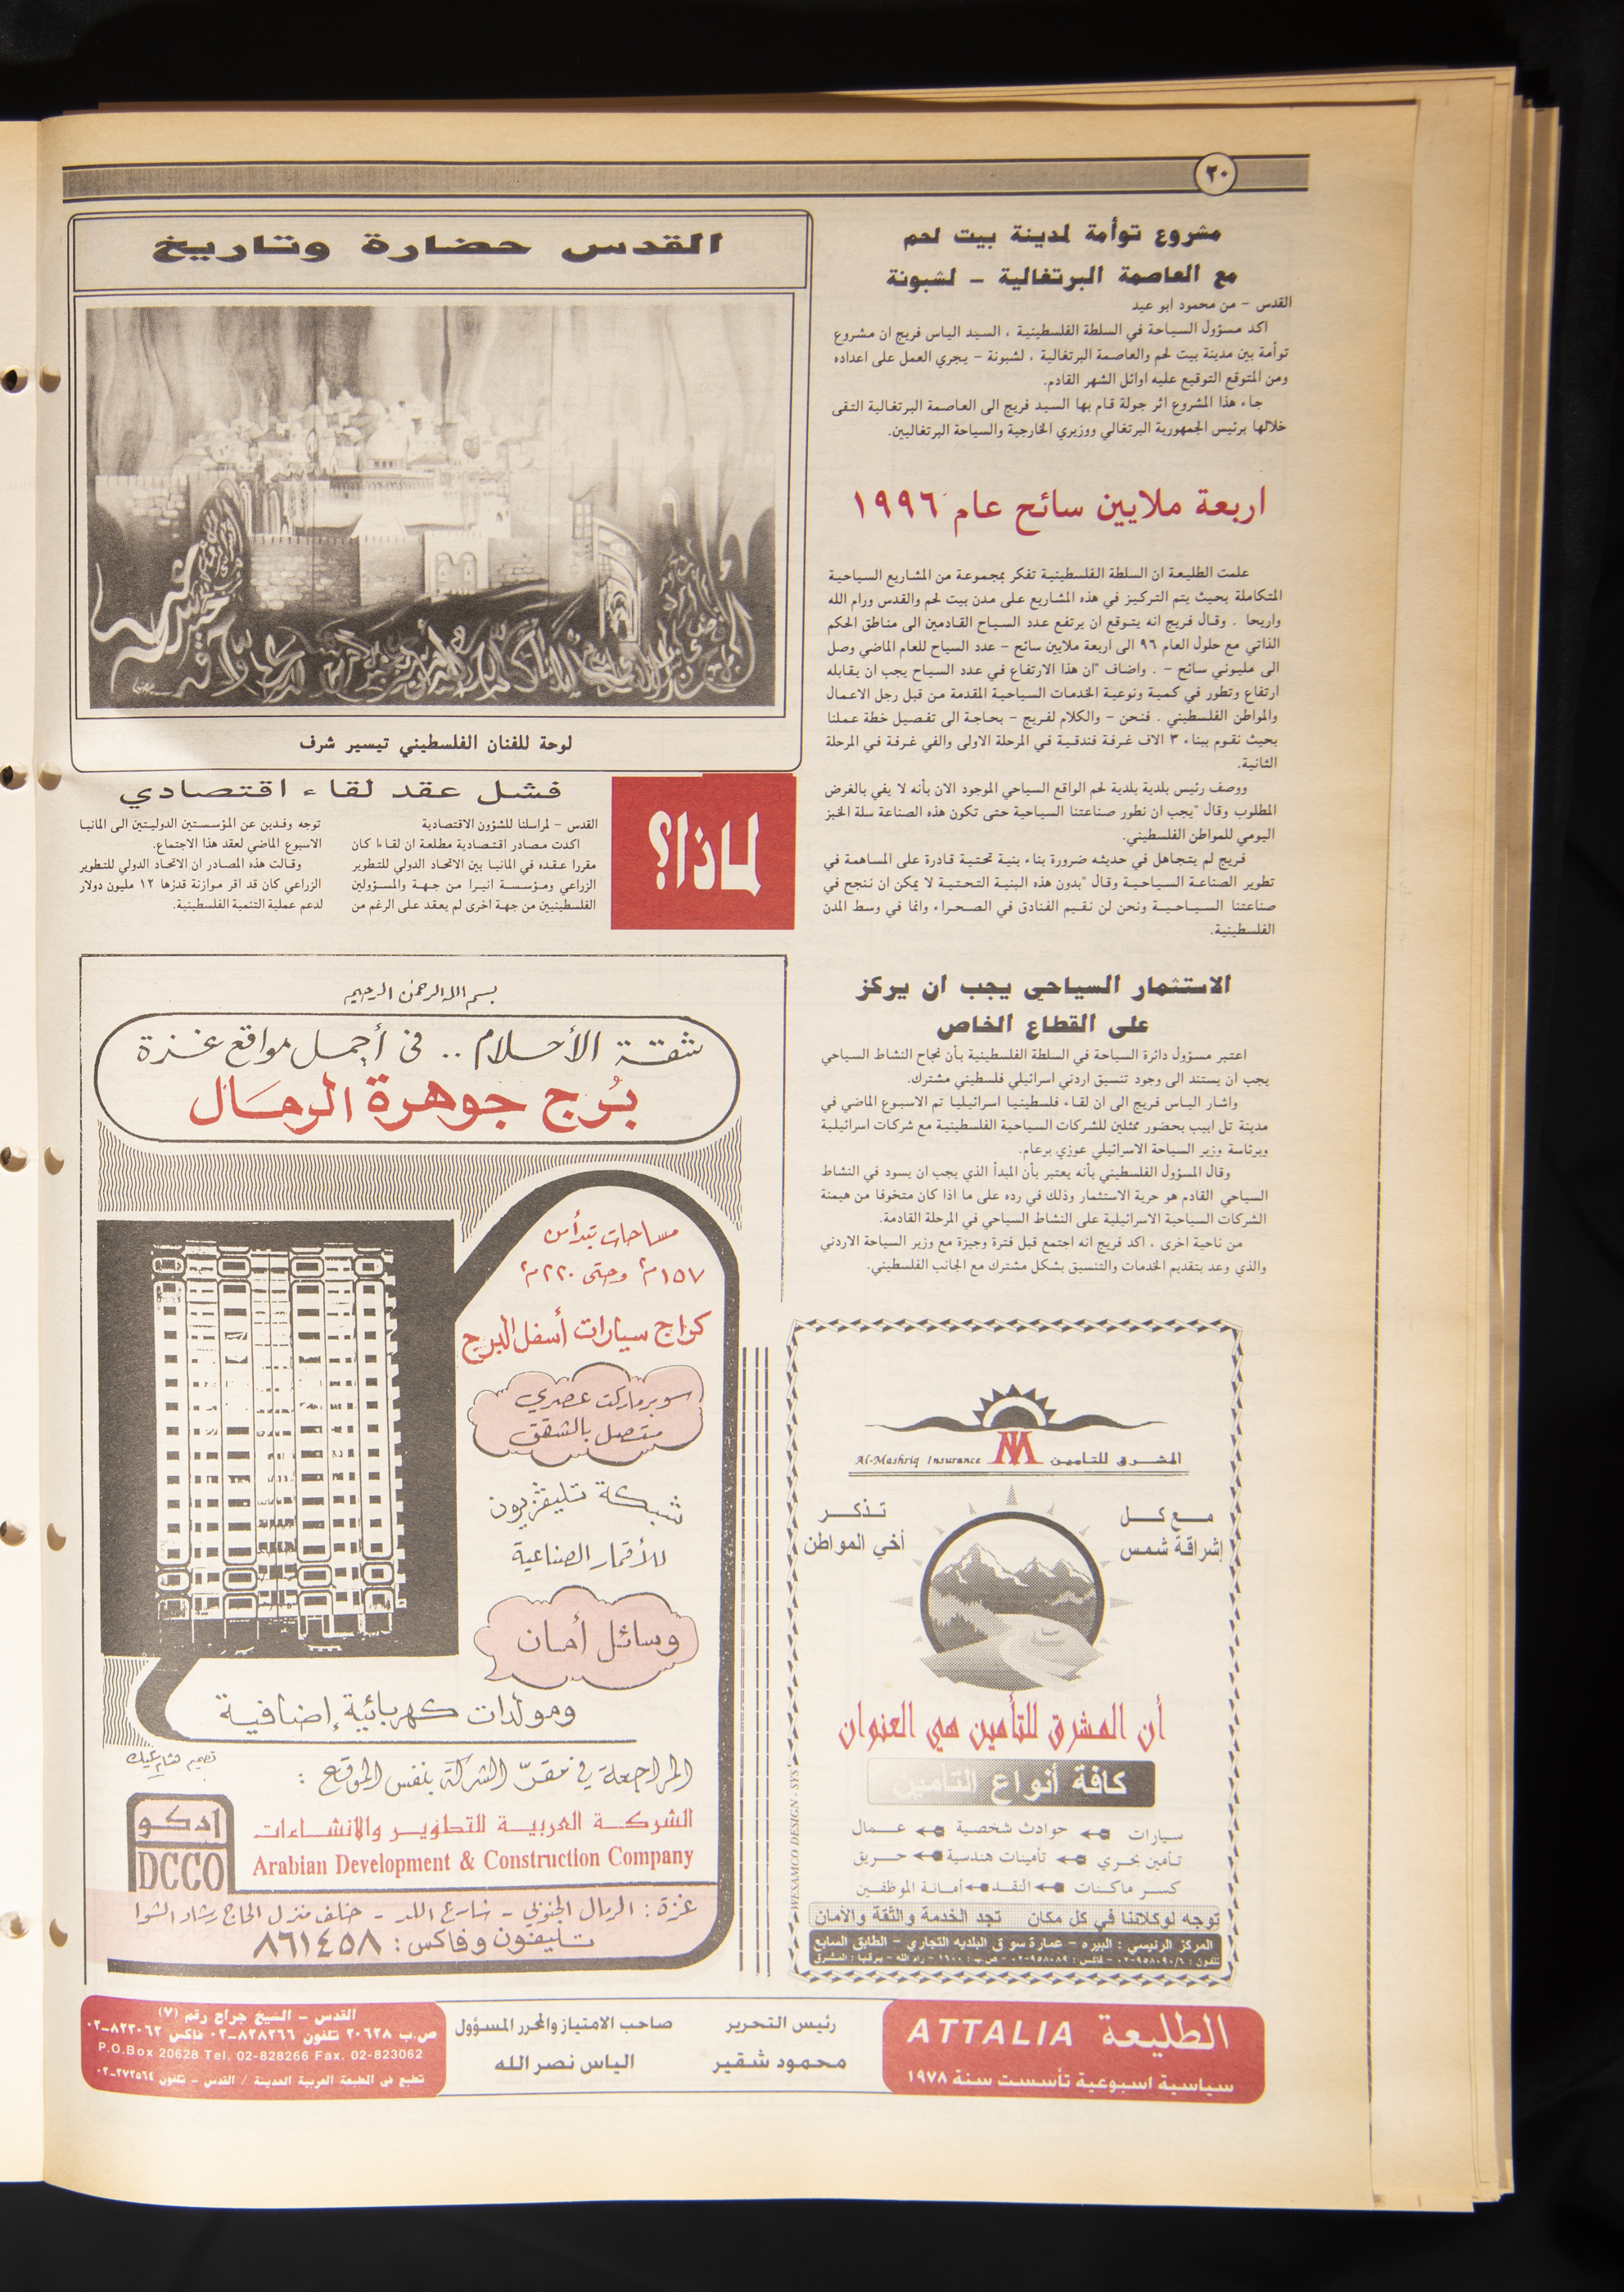 ٢٠
مشروع توأمة لمدينة بيت لحم
مع العاصمة البرتغالية - لشبونة
القدس - من محمود ابو عيد
اكد مسؤول السياحة في السلطة الفلسطينية ، السيد الياس فريج ان مشروع
توأمة بين مدينة بيت لحم والعاصمة البرتغالية ، لشبونة - يجري العمل على اعداده
ومن المتوقع التوقيع عليه اوائل الشهر القادم.
جاء هذا المشروع اثر جولة قام بها السيد فريج الى العاصمة البرتغالية التقى
خلالها برئيس الجمهورية البرتغالي ووزيري الخارجية والسياحة البرتغاليين.
اربعة ملايين سائح عام ١٩٩٦
علمت الطليعة ان السلطة الفلسطينية تفكر بمجموعة من المشاريع السياحية
المتكاملة بحيث يتم التركيز في هذه المشاريع على مدن بيت لحم والقدس ورام الله
واريحا . وقال فريج انه يتوقع ان يرتفع عدد السياح القادمين الى مناطق الحكم
الذاتي مع حلول العام ٩٦ الى اربعة ملايين سائح - عدد السياح للعام الماضي وصل
الى مليوني سائح - . واضاف "ان هذا الارتفاع في عدد السياح يجب ان يقابله
ارتفاع وتطور في كمية ونوعية الخدمات السياحية المقدمة من قبل رجل الاعمال
والمواطن الفلسطيني . فنحن - والكلام لفريج - بحاجة الى تفصيل خطة عملنا
بحيث نقوم ببناء ٣ الاف غرفة فندقية في المرحلة الاولى والفي غرفة في المرحلة
الثانية.
ووصف رئيس بلدية بلدية لحم الواقع السياحي الموجود الان بأنه لا يفي بالغرض
المطلوب وقال "يجب ان نطور صناعتنا السياحية حتى تكون هذه الصناعة سلة الخبز
اليومي للمواطن الفلسطيني.
فريج لم يتجاهل في حديثه ضرورة بناء بنية تحتية قادرة على المساهمة في
تطوير الصناعة السياحية وقال "بدون هذه البنية التحتية لا يمكن ان ننجح في
صناعتنا السياحية ونحن لن نقيم الفنادق في الصحراء وانما في وسط المدن
الفلسطينية.
الاستثمار السياحي يجب ان يركز
على القطاع الخاص
اعتبر مسؤول دائرة السياحة في السلطة الفلسطينية بأن نجاح النشاط السياحي
يجب ان يستند الى وجود تنسيق اردني اسرائيلي فلسطيني مشترك.
واشار الياس فريج الى ان لقاء فلسطينيا اسرائيليا تم الاسبوع الماضي في
مدينة تل ابيب بحضور ممثلين للشركات السياحية الفلسطينية مع شركات اسرائيلية
وبرئاسة وزير السياحة الاسرائيلي عوزي برعام.
وقال المسؤول الفلسطيني بأنه يعتبر بأن المبدأ الذي يجب ان يسود في النشاط
السياحي القادم هو حرية الاستثمار وذلك في رده على ما اذا كان متخوفا من هيمنة
الشركات السياحية الاسرائيلية على النشاط السياحي في المرحلة القادمة.
من ناحية اخرى ، اكد فريج انه اجتمع قبل فترة وجيزة مع وزير السياحة الاردني
والذي وعد بتقديم الخدمات والتنسيق بشكل مشترك مع الجانب الفلسطيني.
القدس حضارة وتاريخ
لوحة للفنان الفلسطيني تيسير شرف
لماذا؟
فشل عقد لقاء اقتصادي
القدس - لمراسلنا للشؤون الاقتصادية
اكدت مصادر اقتصادية مطلعة ان لقاءا كان
مقررا عقده في المانيا بين الاتحاد الدولي للتطوير
الزراعي ومؤسسة انيرا من جهة والمسؤولين
الفلسطينيين من جهة اخرى لم يعقد على الرغم من
توجه وفدين عن المؤسستين الدوليتين الى المانيا
الاسبوع الماضي لعقد هذا الاجتماع.
وقالت هذه المصادر ان الاتحاد الدولي للتطوير
الزراعي كان قد اقر موازنة قدرها ١٢ مليون دولار
لدعم عملية التنمية الفلسطينية.
بسم الله الرحمن الرحيم
شقة الأحلام .. في أجمل مواقع غزة
بُرج جوهرة الرمَال
مساحات تبدأ من
١٥٧م٢ وحتى ٢٢٠م٢
كراج سيارات أسفل البرج
سوبرماركت عصري
متصل بالشقق
شبكة تليفزيون
للأقمار الصناعية
وسائل أمان
ومولدات كهربائية إضافية
تصميم هشام عليك
المراجعة في مقرّ الشركة بنفس الموقع :
ادكو
DCCO
الشركة العربية للتطوير والانشاءات
Arabian Development & Construction Company
غزة : الرمال الجنوبي - شارع اللد - خلف منزل الحاج رشاد الشوا
تليفون وفاكس : ٨٦١٤٥٨
Al-Mashriq Insurance المشرق للتامين
مع كل
إشراقة شمس
تذكر
أخي المواطن
أن المشرق للتأمين هي العنوان
كافة أنواع التأمين
سيارات حوادث شخصية عمال
تأمين بحري تأمينات هندسية حريق
كسر ماكنات النقد أمانة الموظفين
توجه لوكلائنا في كل مكان تجد الخدمة والثقة والأمان
المركز الرئيسي : البيره - عمارة سوق البلديه التجاري - الطابق السابع
تلفون : ٩٥٨٠٩٠/٦-٠٢ - فاكس : ٩٥٨٠٨٩-٠٢ - ص.ب : ١٦٠٠ - رام الله - برقيا : المشرق
WESAMCO DESIGN - SYS
الطليعة ATTALIA
سياسية اسبوعية تأسست سنة ١٩٧٨
رئيس التحرير
محمود شقير
صاحب الامتياز والمحرر المسؤول
الياس نصر الله
القدس - الشيخ جراح رقم (٧)
ص.ب ٢٠٦٢٨ تلفون ٨٢٨٢٦٦-٠٢ فاكس ٨٢٣٠٦٢-٠٢
P.O.Box 20628 Tel. 02-828266 Fax. 02-823062
تطبع في المطبعة العربية الحديثة / القدس - تلفون ٢٧٢٥٦٤-٠٢